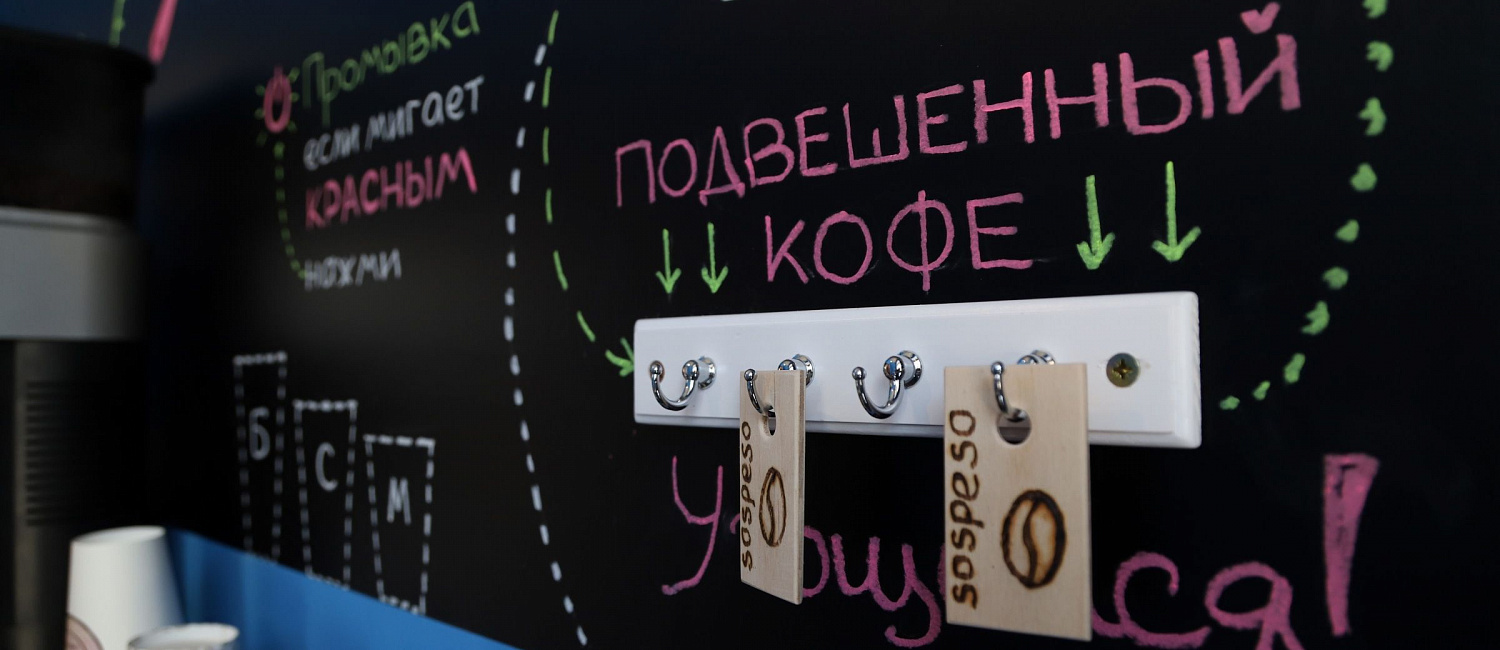 Промывка
если мигает
КРАСНЫМ
нажми
Б
С
М
ПОДВЕШЕННЫЙ
КОФЕ
sospeso
sospeso